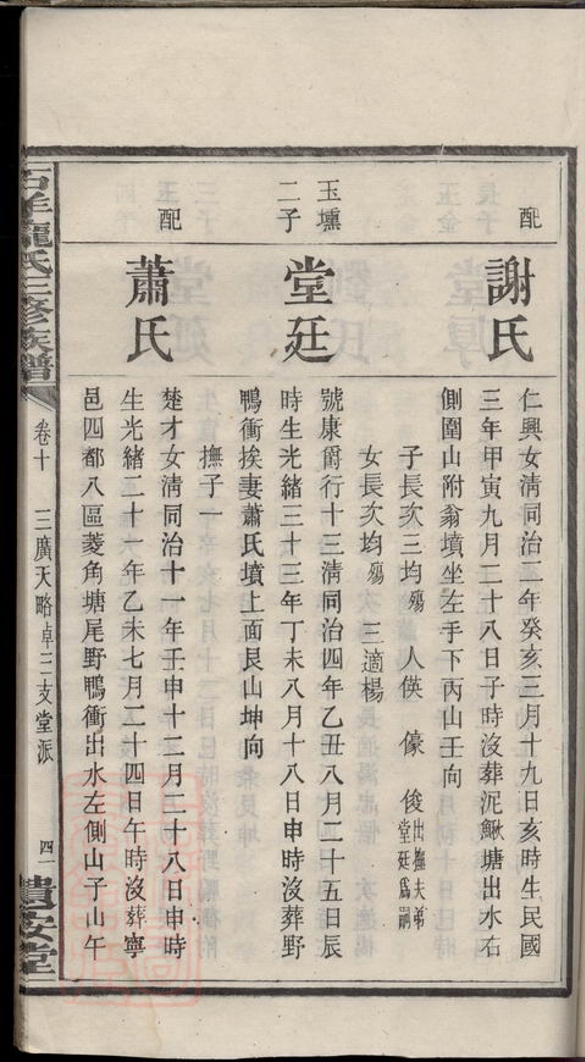 配
謝氏
仁興女清同治二年癸亥三月十九日亥時生民國
三年甲寅九月二十八日子時沒葬泥鰍塘出水右
側圍山附翁墳坐左手下丙山壬向
子長次三均殤 人俊 㑺 俊出撫夫弟堂廷爲嗣
女長次均殤 三適楊
玉壎
二子
堂廷
號康爵行十三清同治四年乙丑八月二十五日辰
時生光緒三十三年丁未八月十八日申時沒葬野
鴨衝挨妻蕭氏墳上面艮山坤向
撫子一
配
蕭氏
楚才女清同治十一年壬申十二月二十八日申時
生光緒二十一年乙未七月二十四日午時沒葬寧
邑四都八區菱角塘尾野鴨衝出水左側山子山午
石羊龐氏三修族譜
卷十
三廣天略卓三支堂派
四一
貽安堂